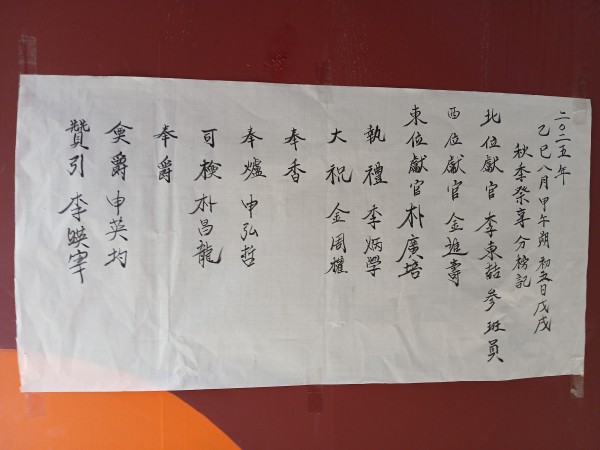 二〇二五年
乙巳八月甲午朔初五日戊戌
秋季祭享分榜記
北位獻官 李東喆 參班員
西位獻官 金進壽
東位獻官 朴廣培
執禮 李炳學
大祝 金周權
奉香
奉爐 申弘哲
司樽 朴昌龍
奉爵
奠爵 申英均
贊引 李暎宰